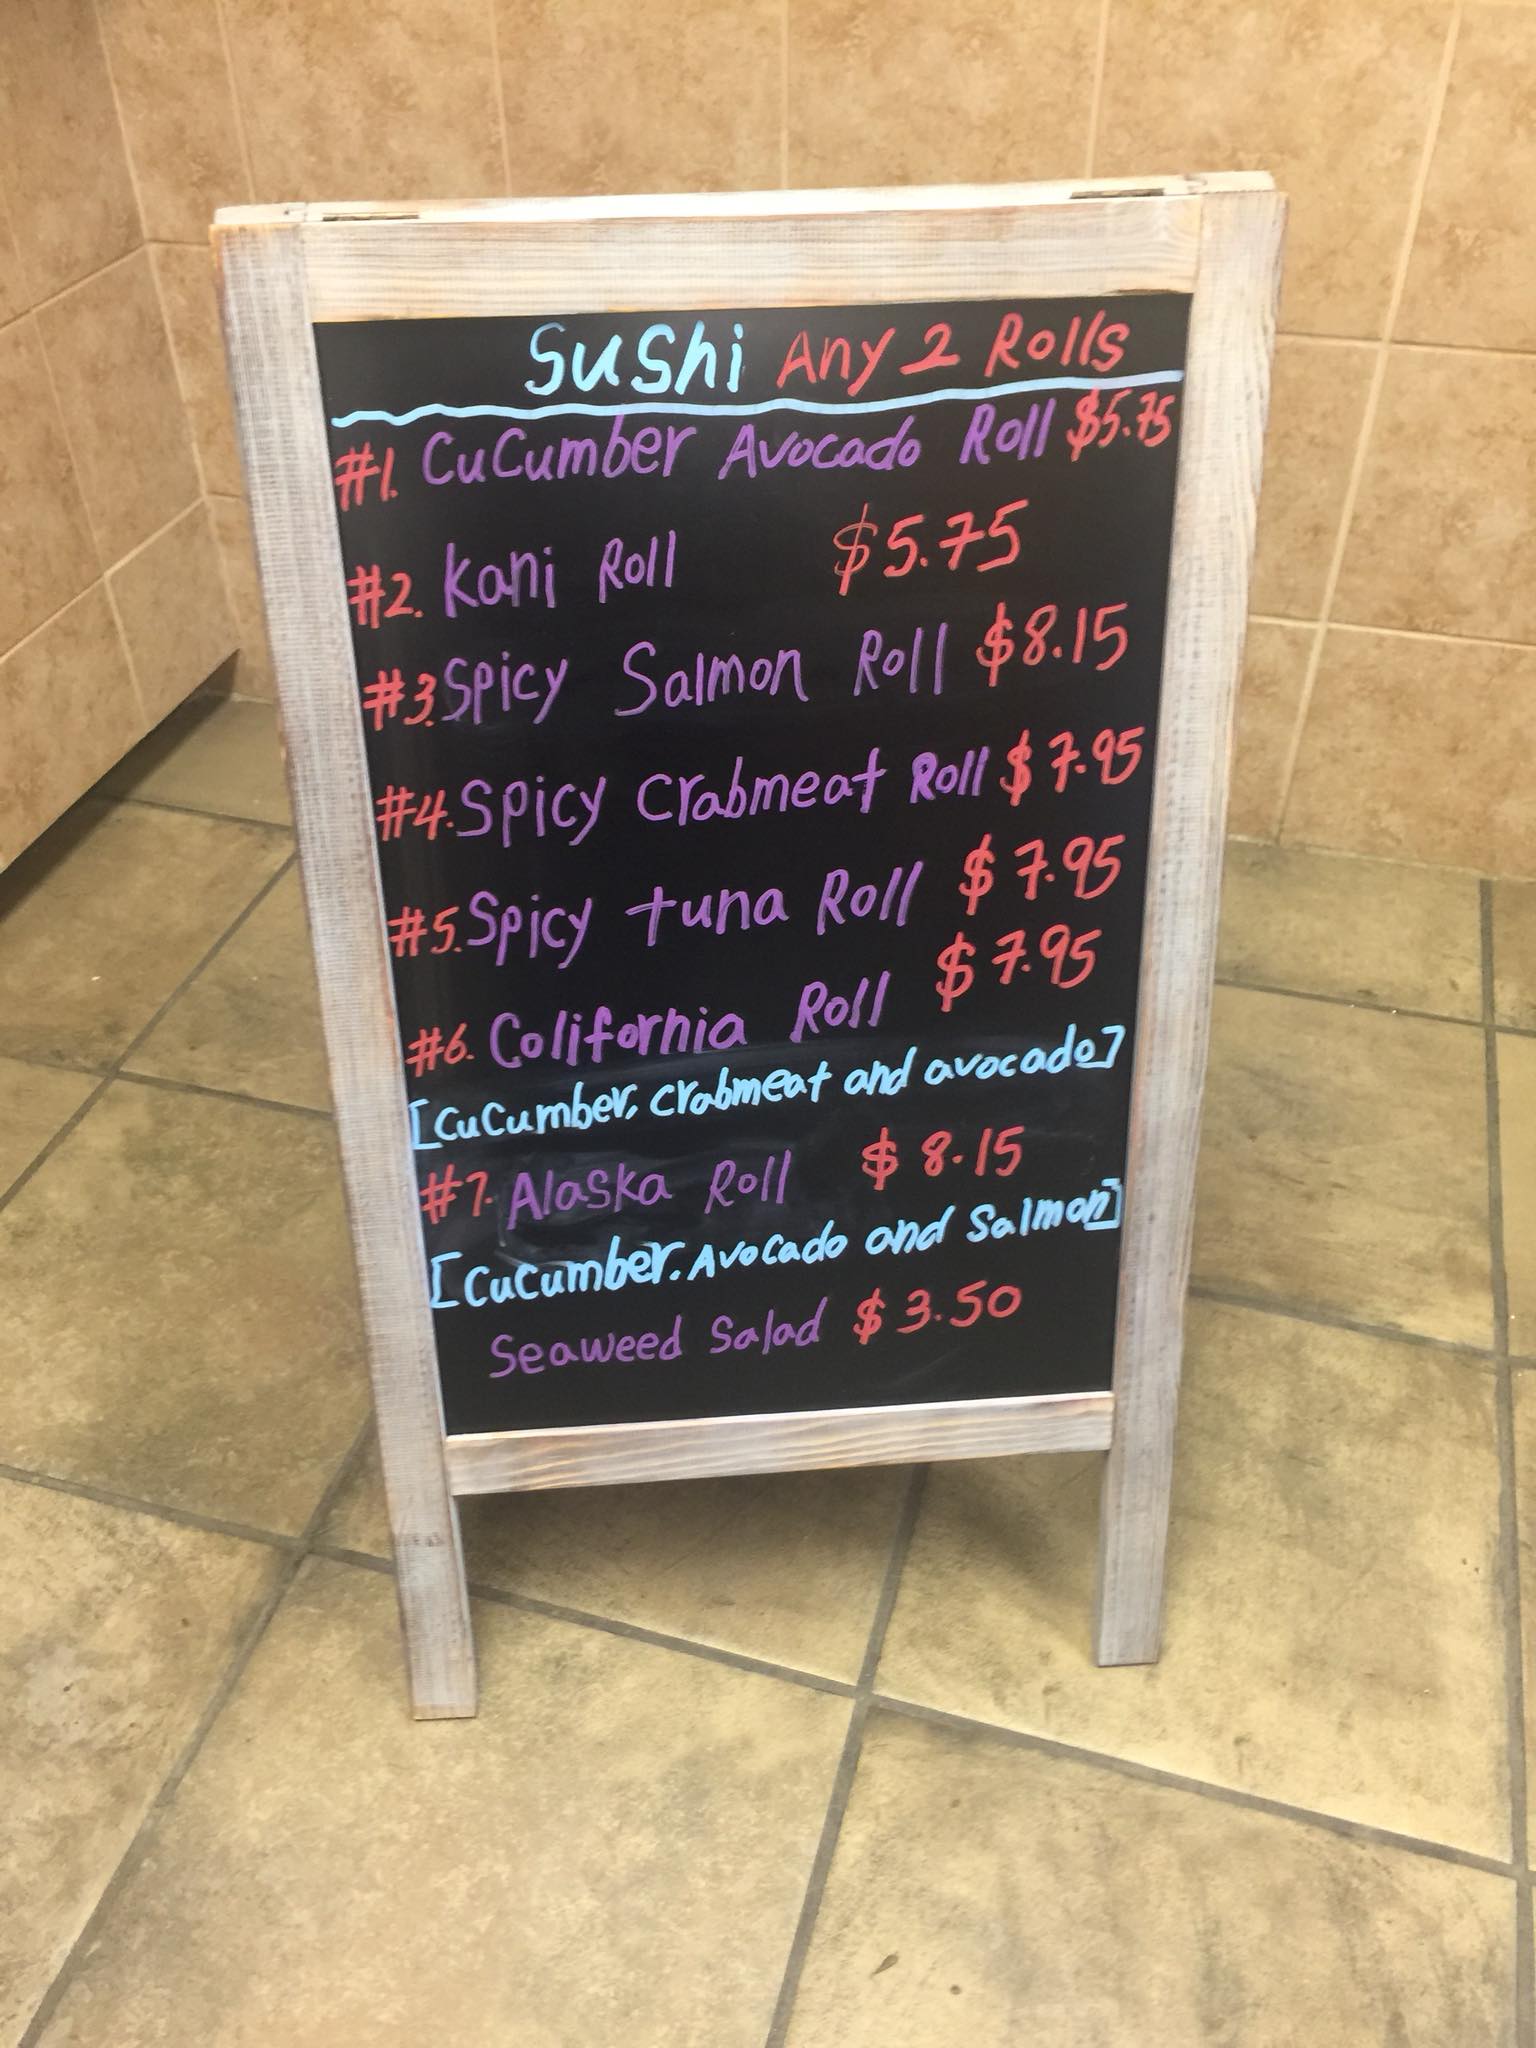 Sushi Any 2 Rolls
#1. Cucumber Avocado Roll $5.75
#2. Kani Roll $5.75
#3. Spicy Salmon Roll $8.15
#4. Spicy Crabmeat Roll $7.95
#5. Spicy tuna Roll $7.95
#6. California Roll $7.95
[Cucumber, crabmeat and avocado]
#7. Alaska Roll $8.15
[Cucumber. Avocado and Salmon]
Seaweed Salad $3.50